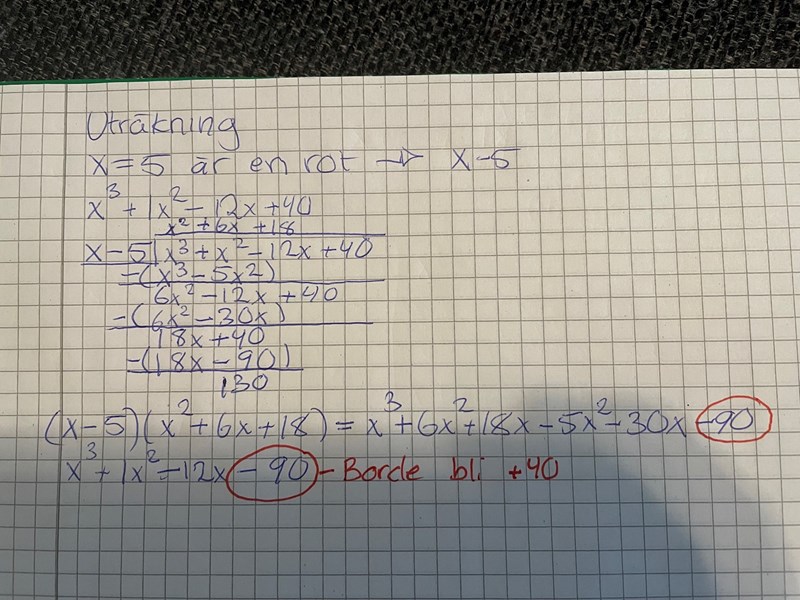 Uträkning
x=5 är en rot → x-5
x³ + 1x² - 12x + 40
x² + 6x + 18
x-5 | x³ + x² - 12x + 40
-(x³ - 5x²)
6x² - 12x + 40
-(6x² - 30x)
18x + 40
-(18x - 90)
130
(x-5)(x² + 6x + 18) = x³ + 6x² + 18x - 5x² - 30x - 90
x³ + 1x² - 12x - 90 - Borde bli +40